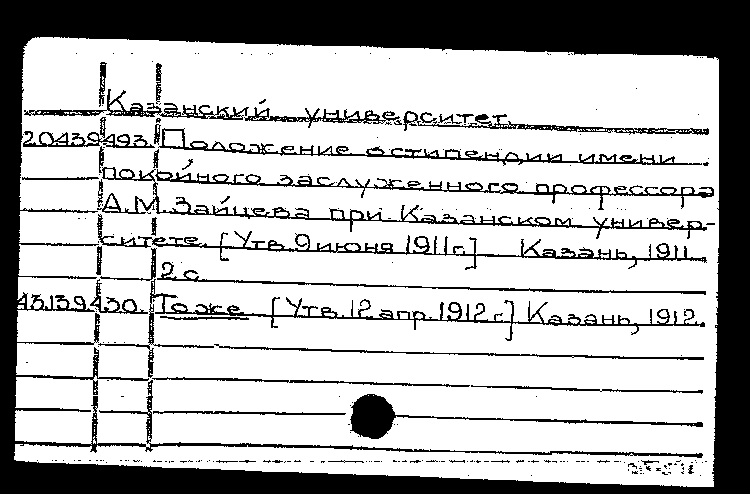 Казанский университет.
20439493. Положение о стипендии имени
покойного заслуженного профессора
А.М.Зайцева при Казанском универ-
ситете. [Утв. 9 июня 1911г.] Казань, 1911.
2 с.
43139430. То же [Утв. 12 апр. 1912 г.] Казань, 1912.